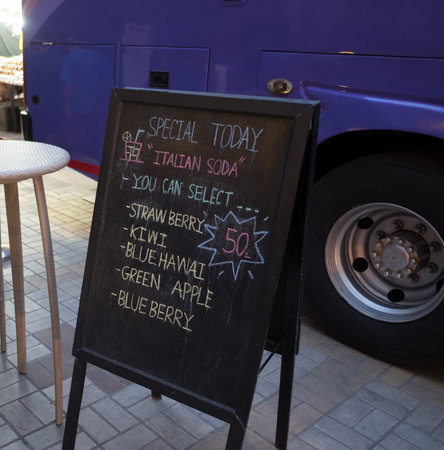 SPECIAL TODAY
"ITALIAN SODA"
- YOU CAN SELECT ...
- STRAWBERRY
- KIWI
- BLUE HAWAI
- GREEN APPLE
- BLUEBERRY
50.-